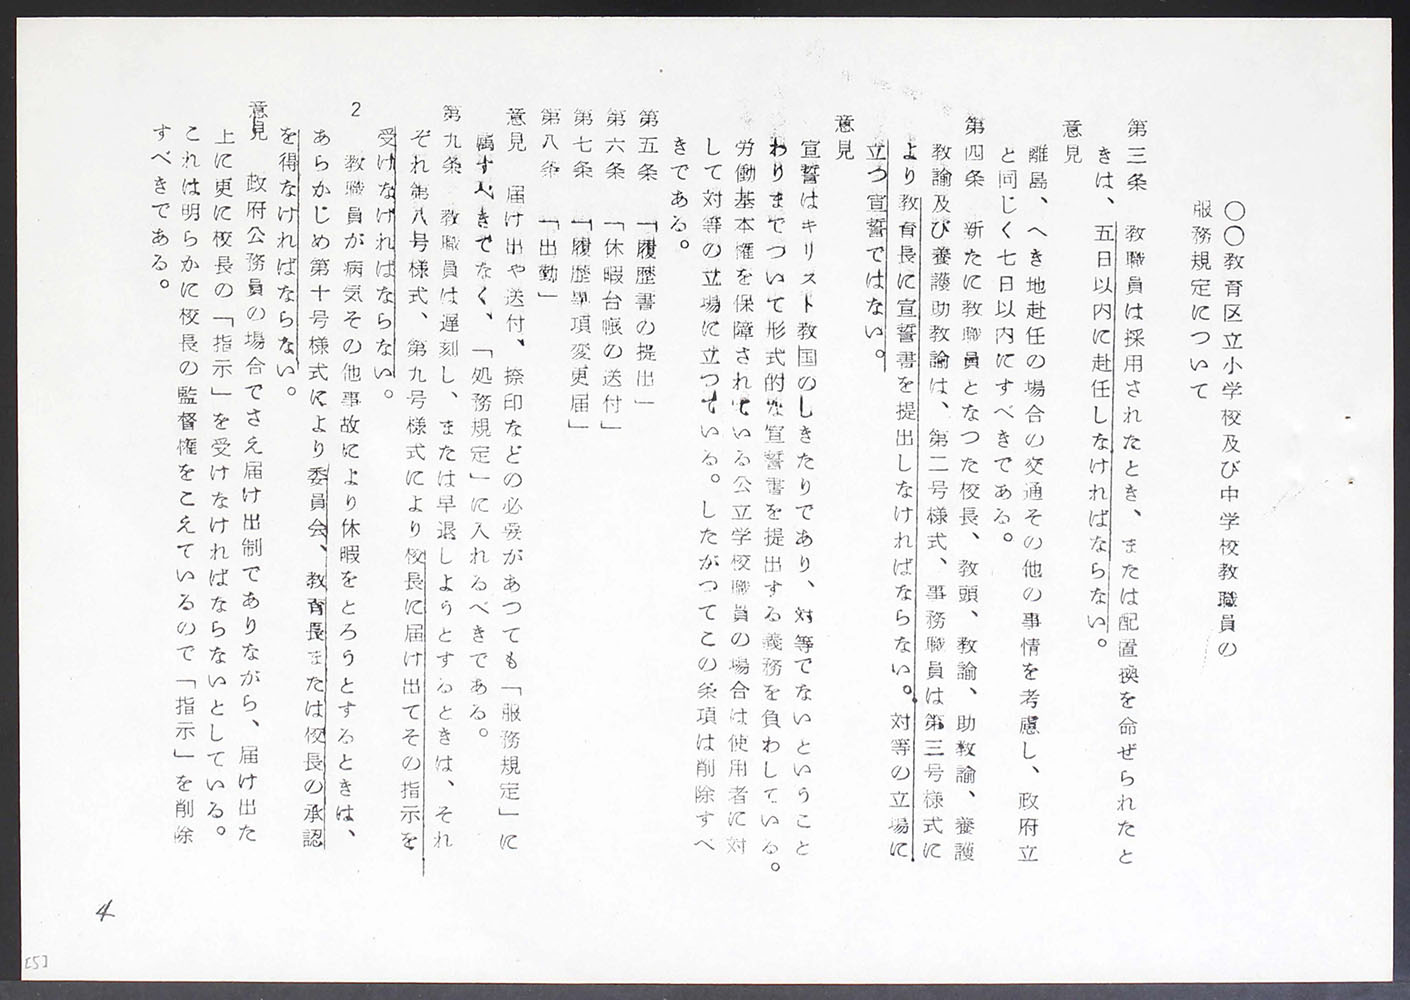 〇〇教育区立小学校及び中学校教職員の
服務規定について
第三条　教職員は採用されたとき、または配置換を命ぜられたと
きは、五日以内に赴任しなければならない。
意見
離島、へき地赴任の場合の交通その他の事情を考慮し、政府立
と同じく七日以内にすべきである。
第四条　新たに教職員となつた校長、教頭、教諭、助教諭、養護
教諭及び養護助教諭は、第二号様式、事務職員は第三号様式に
より教育長に宣誓書を提出しなければならない。対等の立場に
立つ宣誓ではない。
意見
宣誓はキリスト教国のしきたりであり、対等でないということ
わりまでついて形式的な宣誓書を提出する義務を負わしている。
労働基本権を保障されている公立学校職員の場合は使用者に対
して対等の立場に立つている。したがつてこの条項は削除すべ
きである。
第五条　「履歴書の提出」
第六条　「休暇台帳の送付」
第七条　「履歴事項変更届」
第八条　「出勤」
意見　届け出や送付、捺印などの必要があつても「服務規定」に
属すべきでなく、「処務規定」に入れるべきである。
第九条　教職員は遅刻し、または早退しようとするときは、それ
ぞれ第八号様式、第九号様式により校長に届け出てその指示を
受けなければならない。
2　教職員が病気その他事故により休暇をとろうとするときは、
あらかじめ第十号様式により委員会、教育長または校長の承認
を得なければならない。
意見　政府公務員の場合でさえ届け出制でありながら、届け出た
上に更に校長の「指示」を受けなければならないとしている。
これは明らかに校長の監督権をこえているので「指示」を削除
すべきである。
4
[5]